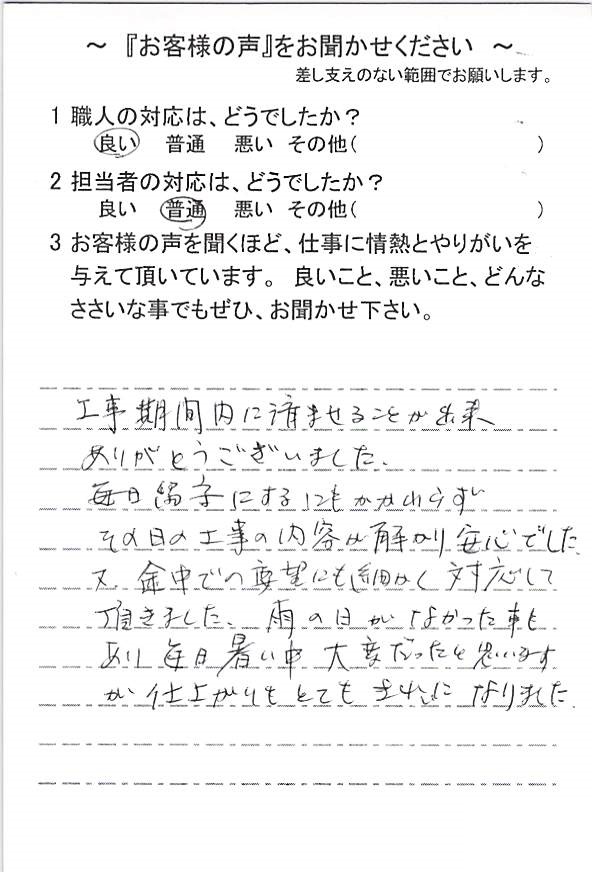 ～ 『お客様の声』をお聞かせください ～
差し支えのない範囲でお願いします。
1 職人の対応は、どうでしたか？
良い 普通 悪い その他( )
2 担当者の対応は、どうでしたか？
良い 普通 悪い その他( )
3 お客様の声を聞くほど、仕事に情熱とやりがいを
与えて頂いています。 良いこと、悪いこと、どんな
ささいな事でもぜひ、お聞かせ下さい。
工事期間内に済ませることが出来
ありがとうございました。
毎日留守にするにもかかわらず
その日の工事の内容が解かり安心でした。
又、途中での要望にも細かく対応して
頂きました。雨の日がなかった事も
あり毎日暑い中大変だったと思います
が仕上がりもとてもきれいになりました。